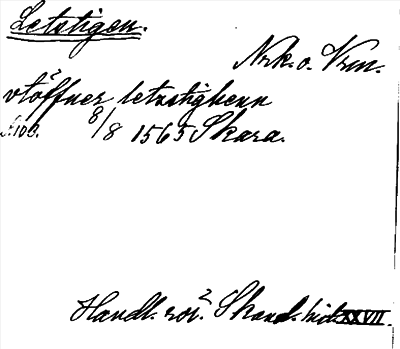 Letstigen.
Nrk. o. Vrm.
vtöffuer letzstighenn
8/8 1565 Skara.
Handl. rör. Skand. hist. XXVII.